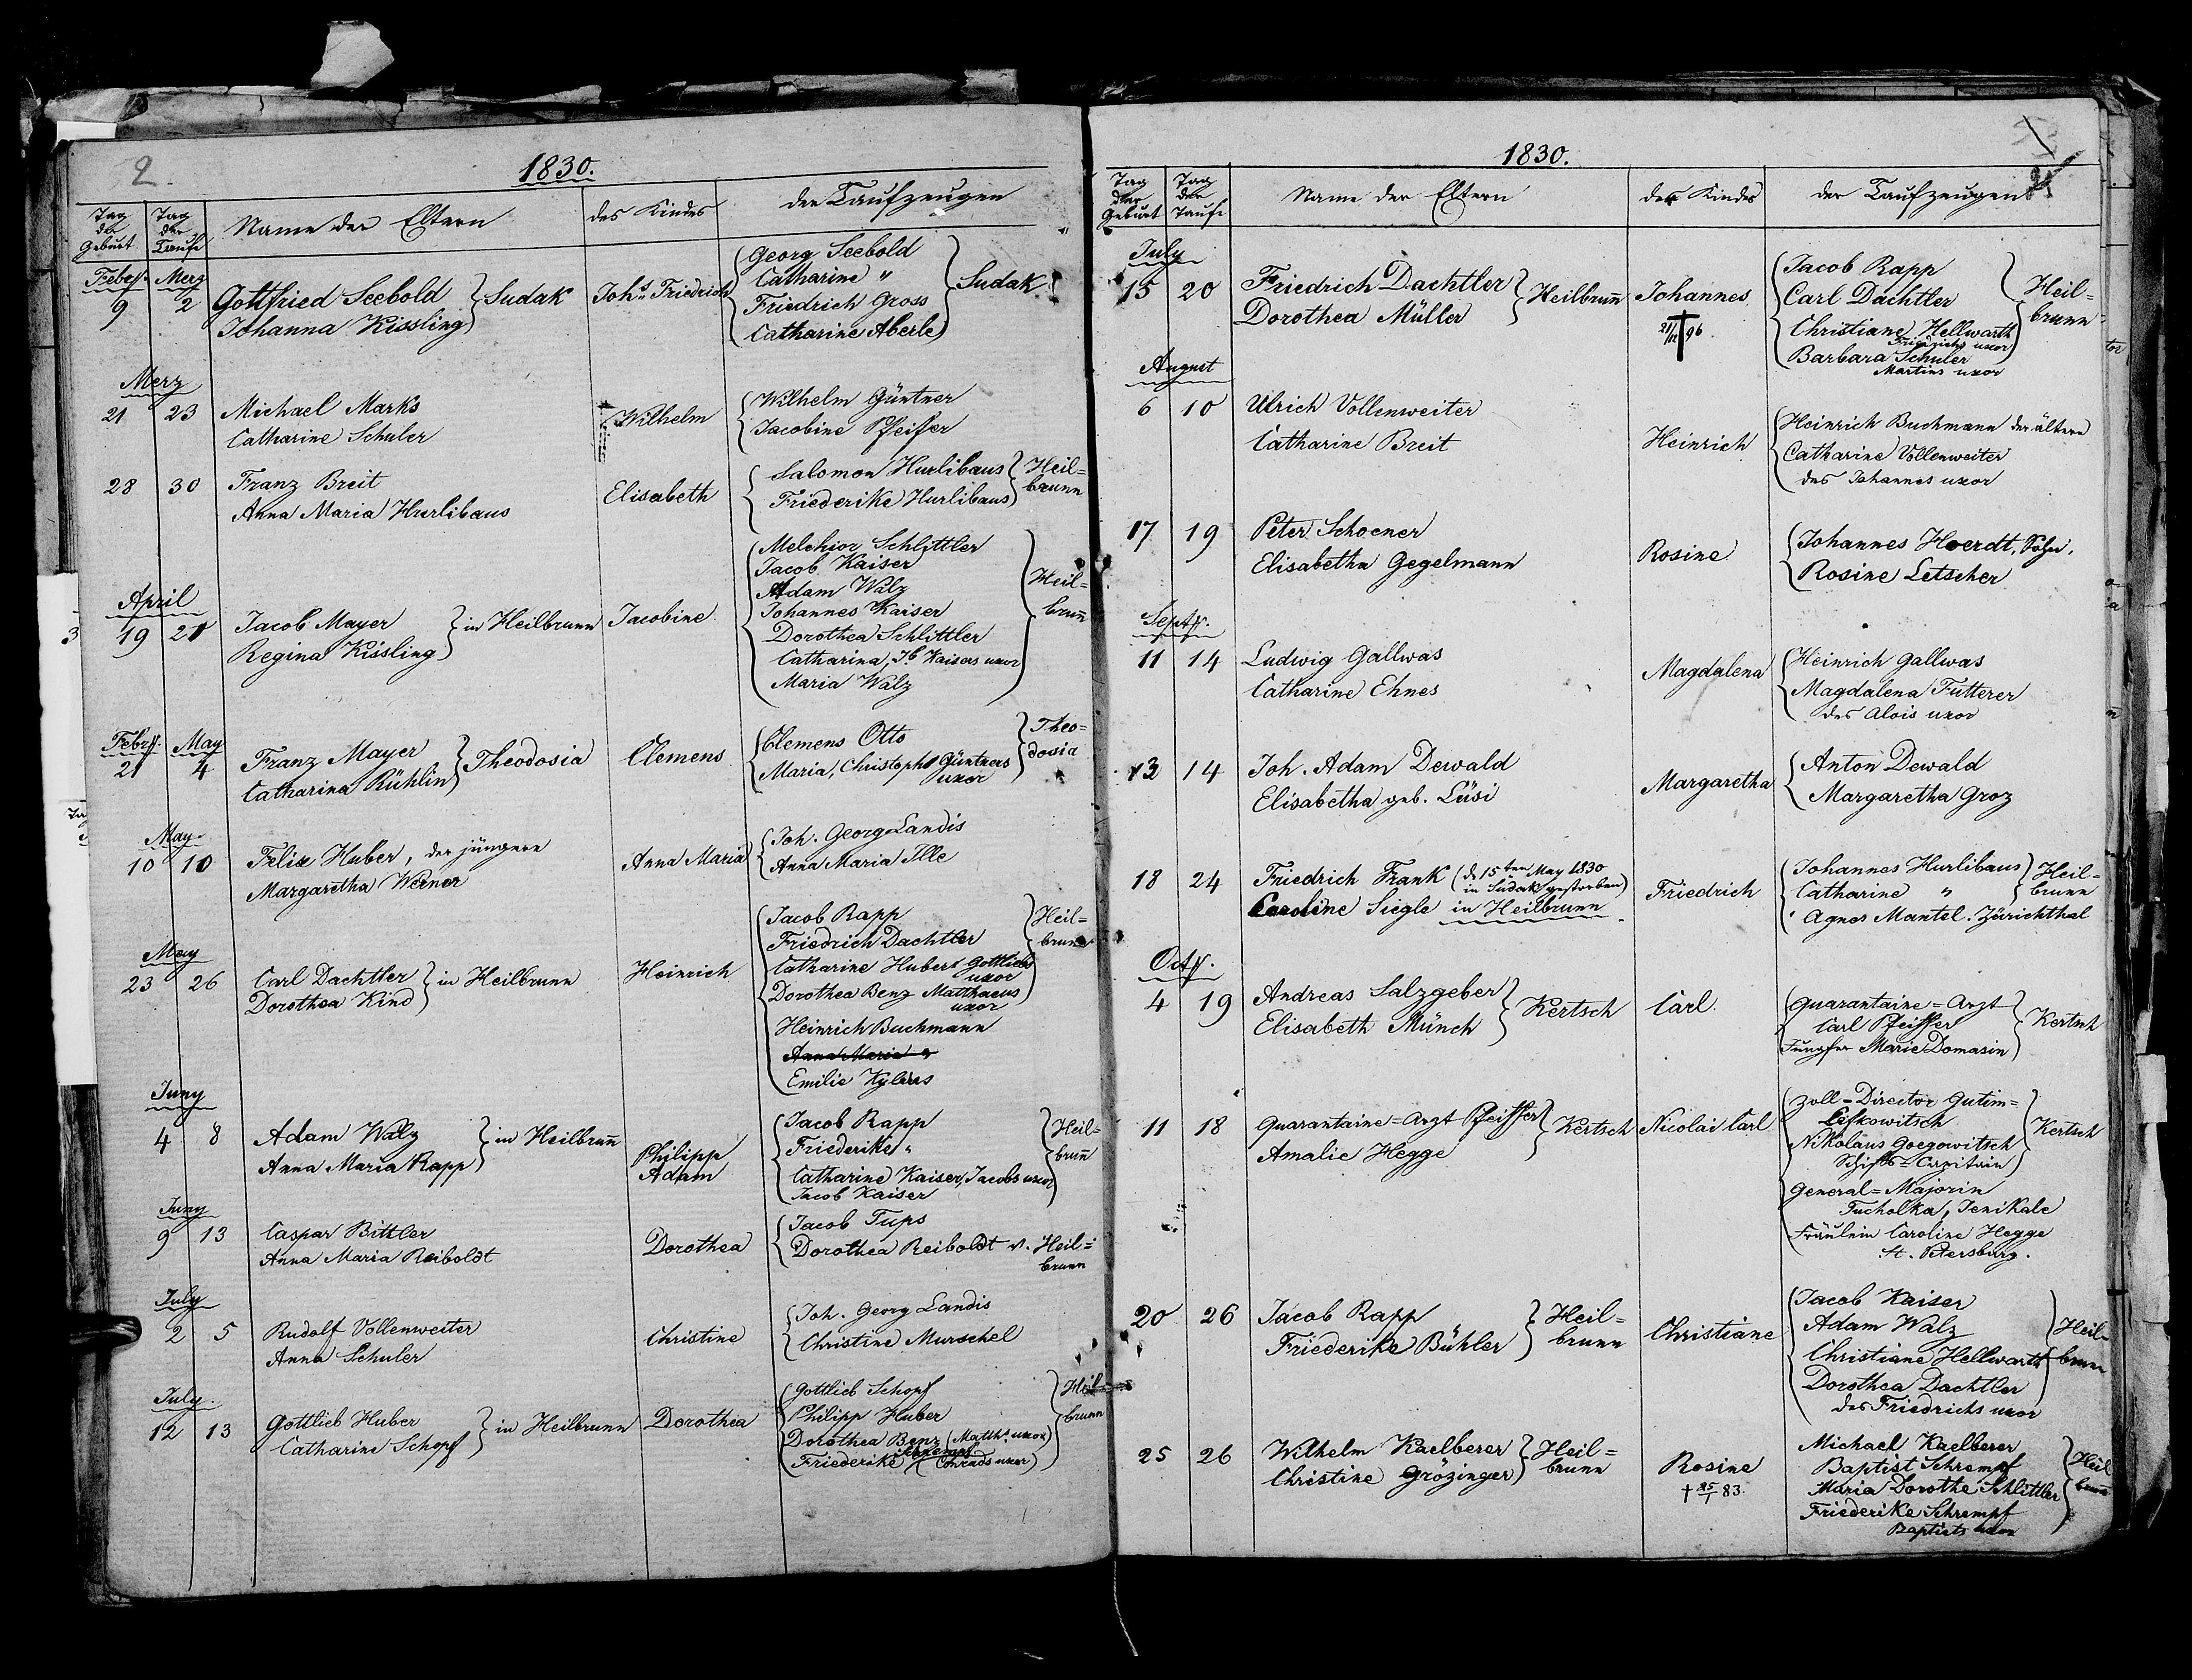 2.
1830.
Tag der Geburt
Tag der Taufe
Name der Eltern
des Kindes
der Taufzeugen
Febr.
Merz
9
2
Gottfried Seebold
Johanna Kissling
Sudak
Johs Friedrich
Georg Seebold
Catharine "
Friedrich Gross
Catharine Aberle
Sudak
Merz
21
23
Michael Marks
Catharine Schuler
Wilhelm
Wilhelm Güntner
Jacobine Pfeifer
28
30
Franz Breit
Anna Maria Hurlibaus
Elisabeth
Salomon Hurlibaus
Friederike Hurlibaus
Heil=
brunn
April
19
21
Jacob Mayer
Regina Kissling
in Heilbrunn
Jacobine
Melchior Schlittler
Jacob Kaiser
Adam Walz
Johannes Kaiser
Dorothea Schlittler
Catharina, Jb Kaisers uxor
Maria Walz
Heil=
brun̄
Febr.
May
21
4
Franz Mayer
Catharina Rühlin
Theodosia
Clemens
Clemens Otto
Maria, Christoph Güntners
uxor
Theo=
dosia
May
10
10
Felix Huber, der jüngere
Margaretha Werner
Anna Maria
Joh. Georg Landis
Anna Maria Ille
May
23
26
Carl Dachtler
Dorothea Kind
in Heilbrunn
Heinrich
Jacob Rapp
Friedrich Dachtler
Catharine Huber Gottliebs
uxor
Dorothea Benz Matthaeus
uxor
Heinrich Buchmann
Anna Maria "
Emilie Kylius
Heil=
brunn
Juny
4
8
Adam Walz
Anna Maria Rapp
in Heilbrun̄
Philipp
Adam
Jacob Rapp
Friederike "
Catharine Kaiser, Jacobs uxor
Jacob Kaiser
Heil=
brun̄
Juny
9
13
Caspar Bittler
Anna Maria Reiboldt
Dorothea
Jacob Tups
Dorothea Reiboldt v. Heil=
brunn
July
2
5
Rudolf Vollenweiter
Anna Schuler
Christine
Joh. Georg Landis
Christine Murschel
July
12
13
Gottlieb Huber
Catharine Schopf
in Heilbrunn
Dorothea
Gottlieb Schopf
Philipp Huber
Dorothea Benz (Matths uxor)
Friederike (Conrads uxor)
Heil=
brunn
1830.
Tag der Geburt
Tag der Taufe
Name der Eltern
des Kindes
der Taufzeugen
July
15
20
Friedrich Dachtler
Dorothea Müller
Heilbrun̄
Johannes
21/12 † 96
Jacob Rapp
Carl Dachtler
Christiane Hellwarth
Friedrichs uxor
Barbara Schuler
Martins uxor
Heil=
brunn
August
6
10
Ulrich Vollenweiter
Catharine Breit
Heinrich
Heinrich Buchmann der ältere
Catharine Vollenweiter
des Johannes uxor
17
19
Peter Schoener
Elisabetha Gegelmann
Rosine
Johannes Hoerdt, Sohn.
Rosine Letscher
Septr.
11
14
Ludwig Gallwas
Catharine Ehnes
Magdalena
Heinrich Gallwas
Magdalena Futterer
des Alois uxor
13
14
Joh. Adam Dewald
Elisabetha geb. Lüsi
Margaretha
Anton Dewald
Margaretha Groz
18
24
Friedrich Frank (d. 15ten May 1830
in Sudak gestorben)
Caroline Siegle in Heilbrunn
Friedrich
Johannes Hurlibaus
Catharine "
Heil=
brunn
Agnes Mantel. Zürichthal
Octr.
4
19
Andreas Salzgeber
Elisabeth Münch
Kertsch
Carl.
Quarantaine=Arzt
Carl Pfeiffer
Jungfer Marie Domasin
Kertsch
11
18
Quarantaine=Arzt Pfeiffer
Amalie Hegge
Kertsch
Nicolai Carl
Zoll=Director Gutim=
Lefkowitsch
Nikolaus Goegowitsch
Schiffs=Capitain
Kertsch
General=Majorin
Tucholka, Jenikale
Fräulein Caroline Hegge
St. Petersburg.
20
26
Jacob Rapp
Friederike Bühler
Heil=
brunn
Christiane
Jacob Kaiser
Adam Walz
Christiane Hellwarth
Dorothea Dachtler
des Friedrichs uxor
Heil=
brunn
25
26
Wilhelm Kaelberer
Christine Grözinger
Heil=
brunn
Rosine
† 25/1 83.
Michael Kaelberer
Baptist Schrempf
Maria Dorothe Schlittler
Friederike Schrempf
Baptists uxor
Heil
brunn